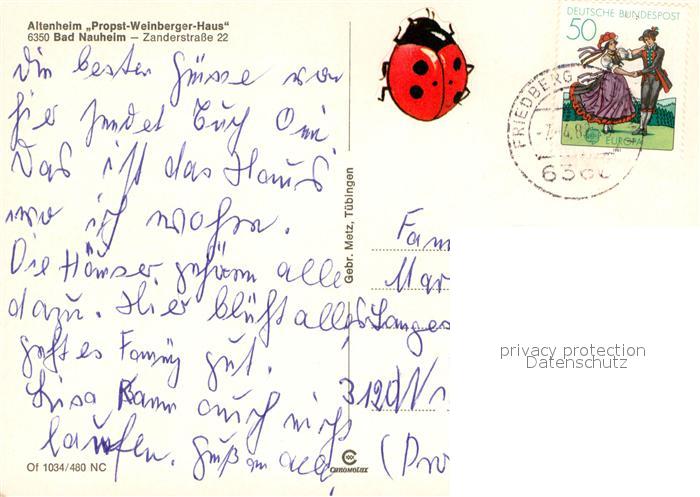 Altenheim „Propst-Weinberger-Haus"
6350 Bad Nauheim — Zanderstraße 22
Die besten Grüsse von
hier sendet Euch Omi
Das ist das Haus
wo ich wohn.
Die Häuser gehören alle
dazu. Hier blüht alles
geht es gut.
Lisa kann auch nicht
laufen. Gruß an alle
Of 1034/480 NC
Gebr. Metz, Tübingen
CHROMOLUX
DEUTSCHE BUNDESPOST
50
EUROPA
1981
FRIEDBERG
6360
Fam
Mar
Lange
3120
privacy protection
Datenschutz